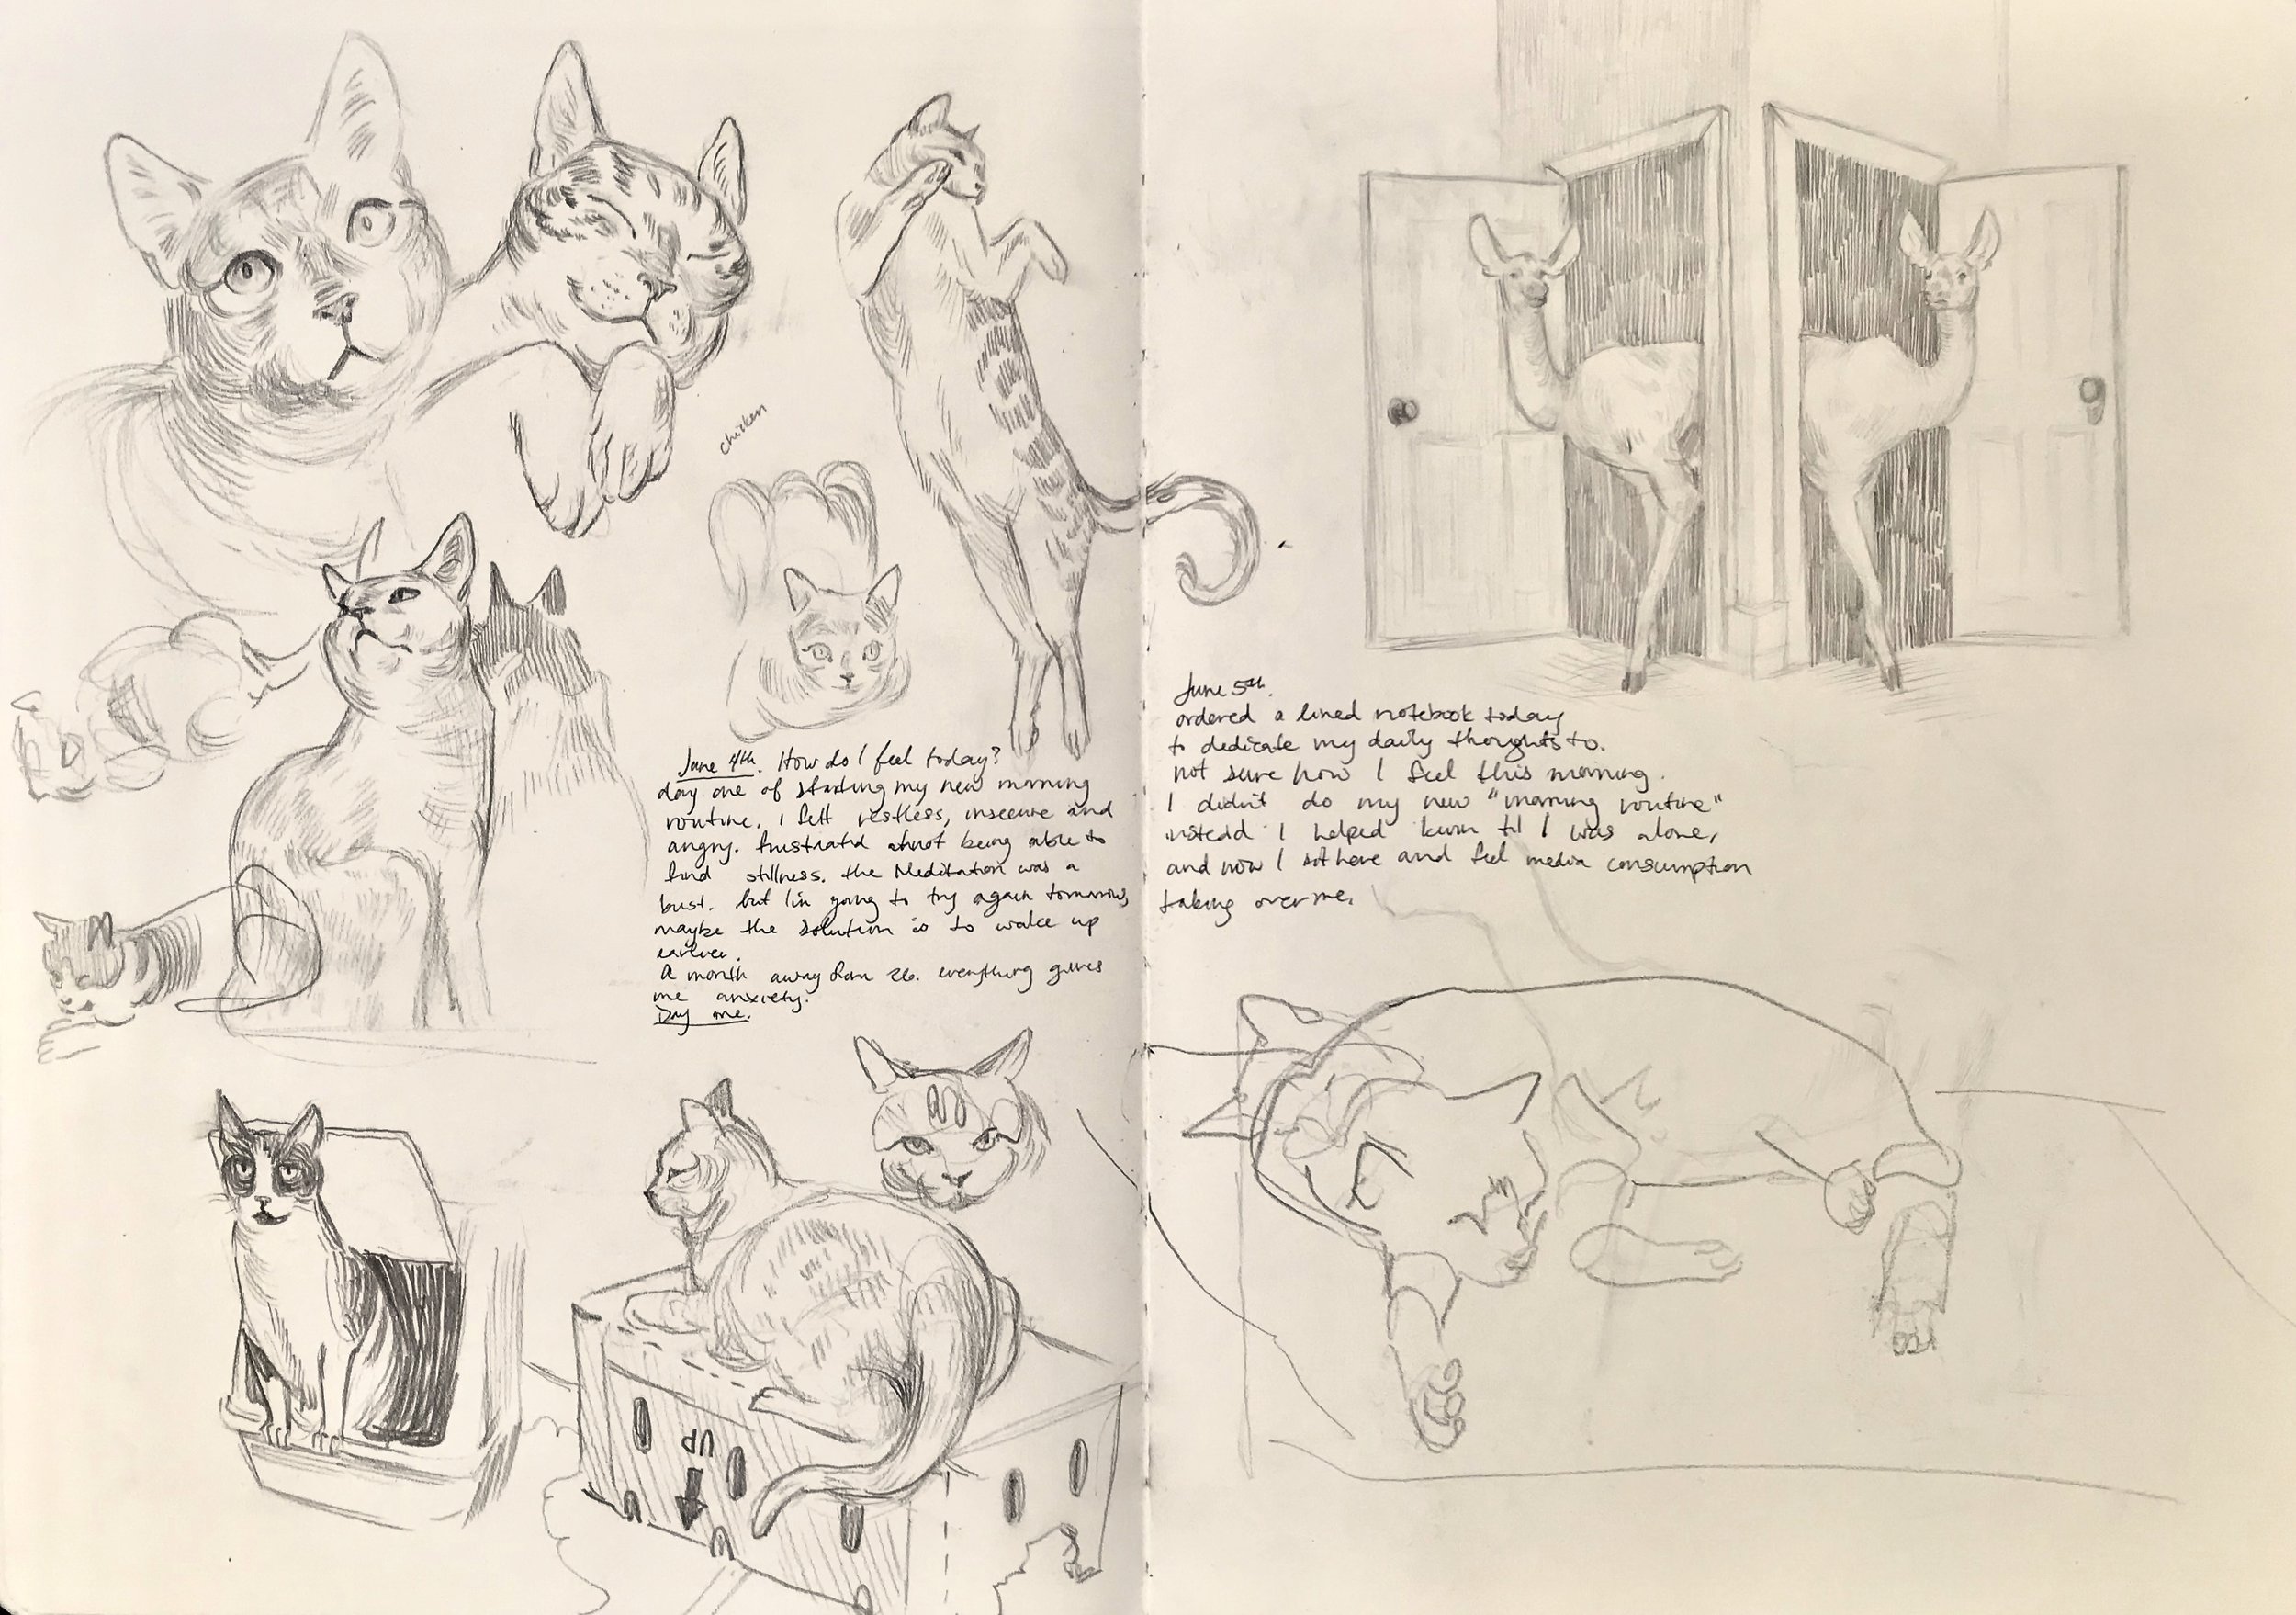 chicken
June 4th. How do I feel today?
day one of starting my new morning
routine. I felt restless, insecure and
angry. frustrated about being able to
find stillness. the Meditation was a
bust. but I'm going to try again tomorrow,
maybe the solution is to wake up
earlier.
A month away from 26. everything gives
me anxiety.
Day one.
UP
June 5th.
ordered a lined notebook today
to dedicate my daily thoughts to.
not sure how I feel this morning.
I didn't do my new "morning routine"
instead I helped til I was alone,
and now I sit here and feel media consumption
taking over me.